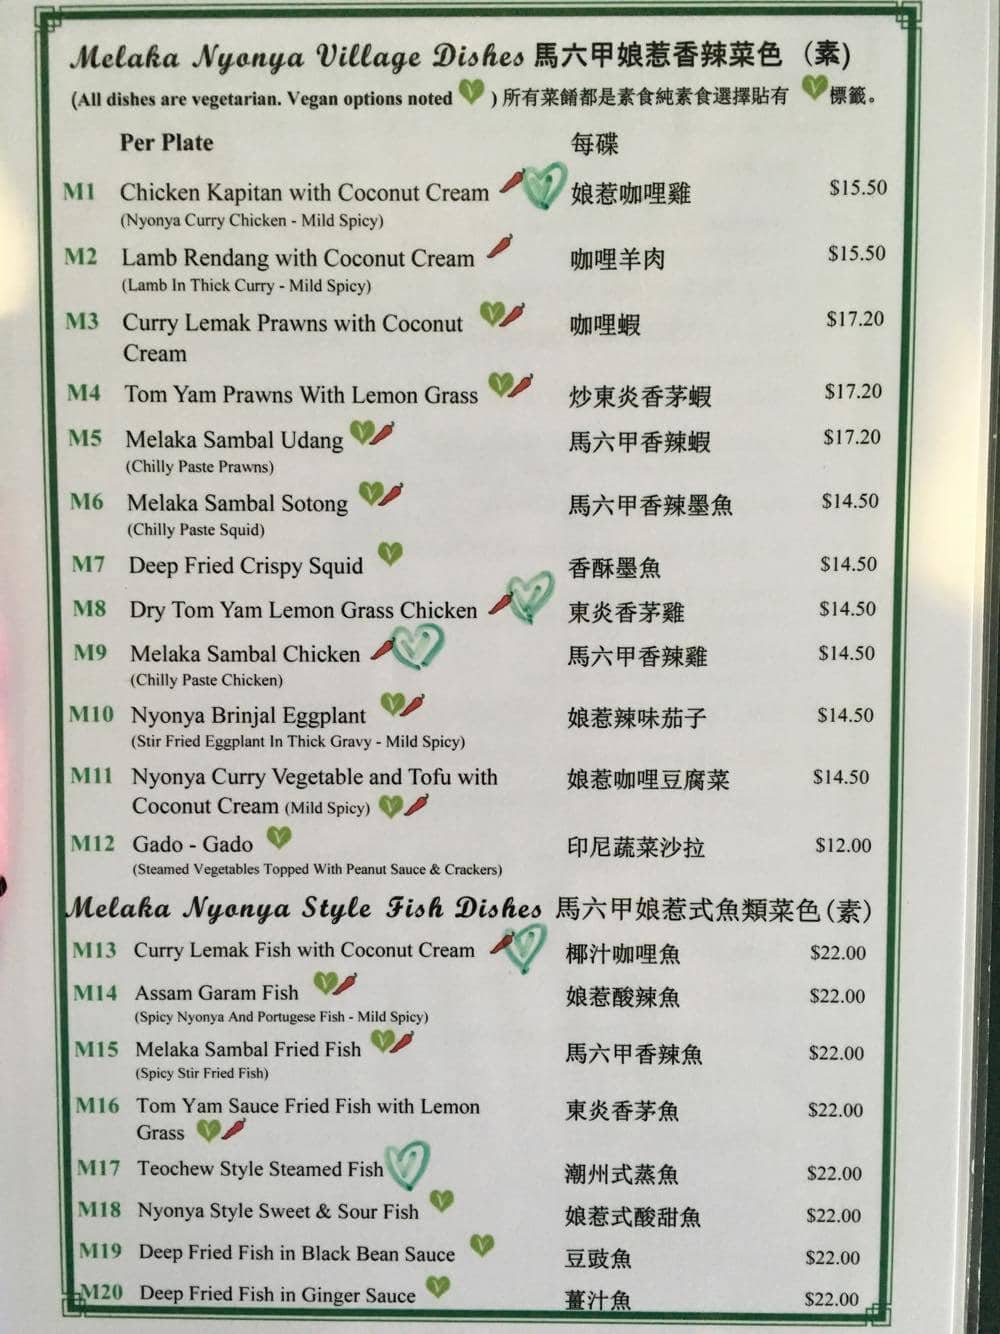 Melaka Nyonya Village Dishes 馬六甲娘惹香辣菜色 (素)
(All dishes are vegetarian. Vegan options noted V ) 所有菜餚都是素食純素食選擇貼有 V 標籤。
Per Plate 每碟
M1 Chicken Kapitan with Coconut Cream V 娘惹咖哩雞 $15.50
(Nyonya Curry Chicken - Mild Spicy)
M2 Lamb Rendang with Coconut Cream 咖哩羊肉 $15.50
(Lamb In Thick Curry - Mild Spicy)
M3 Curry Lemak Prawns with Coconut V 咖哩蝦 $17.20
Cream
M4 Tom Yam Prawns With Lemon Grass V 炒東炎香茅蝦 $17.20
M5 Melaka Sambal Udang V 馬六甲香辣蝦 $17.20
(Chilly Paste Prawns)
M6 Melaka Sambal Sotong V 馬六甲香辣墨魚 $14.50
(Chilly Paste Squid)
M7 Deep Fried Crispy Squid V 香酥墨魚 $14.50
M8 Dry Tom Yam Lemon Grass Chicken V 東炎香茅雞 $14.50
M9 Melaka Sambal Chicken V 馬六甲香辣雞 $14.50
(Chilly Paste Chicken)
M10 Nyonya Brinjal Eggplant V 娘惹辣味茄子 $14.50
(Stir Fried Eggplant In Thick Gravy - Mild Spicy)
M11 Nyonya Curry Vegetable and Tofu with 娘惹咖哩豆腐菜 $14.50
Coconut Cream (Mild Spicy) V
M12 Gado - Gado V 印尼蔬菜沙拉 $12.00
(Steamed Vegetables Topped With Peanut Sauce & Crackers)
Melaka Nyonya Style Fish Dishes 馬六甲娘惹式魚類菜色(素)
M13 Curry Lemak Fish with Coconut Cream V 椰汁咖哩魚 $22.00
M14 Assam Garam Fish V 娘惹酸辣魚 $22.00
(Spicy Nyonya And Portugese Fish - Mild Spicy)
M15 Melaka Sambal Fried Fish V 馬六甲香辣魚 $22.00
(Spicy Stir Fried Fish)
M16 Tom Yam Sauce Fried Fish with Lemon 東炎香茅魚 $22.00
Grass V
M17 Teochew Style Steamed Fish V 潮州式蒸魚 $22.00
M18 Nyonya Style Sweet & Sour Fish V 娘惹式酸甜魚 $22.00
M19 Deep Fried Fish in Black Bean Sauce V 豆豉魚 $22.00
M20 Deep Fried Fish in Ginger Sauce V 薑汁魚 $22.00